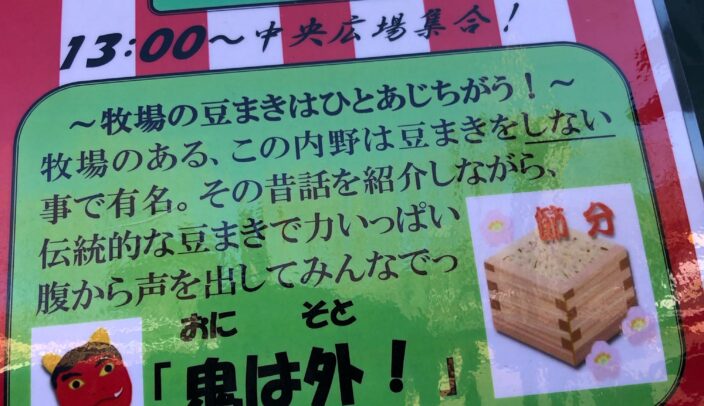 13:00～中央広場集合！
～牧場の豆まきはひとあじちがう！～
牧場のある、この内野は豆まきをしない
事で有名。その昔話を紹介しながら、
伝統的な豆まきで力いっぱい
腹から声を出してみんなでっ
節分
おに そと
「鬼は外！」